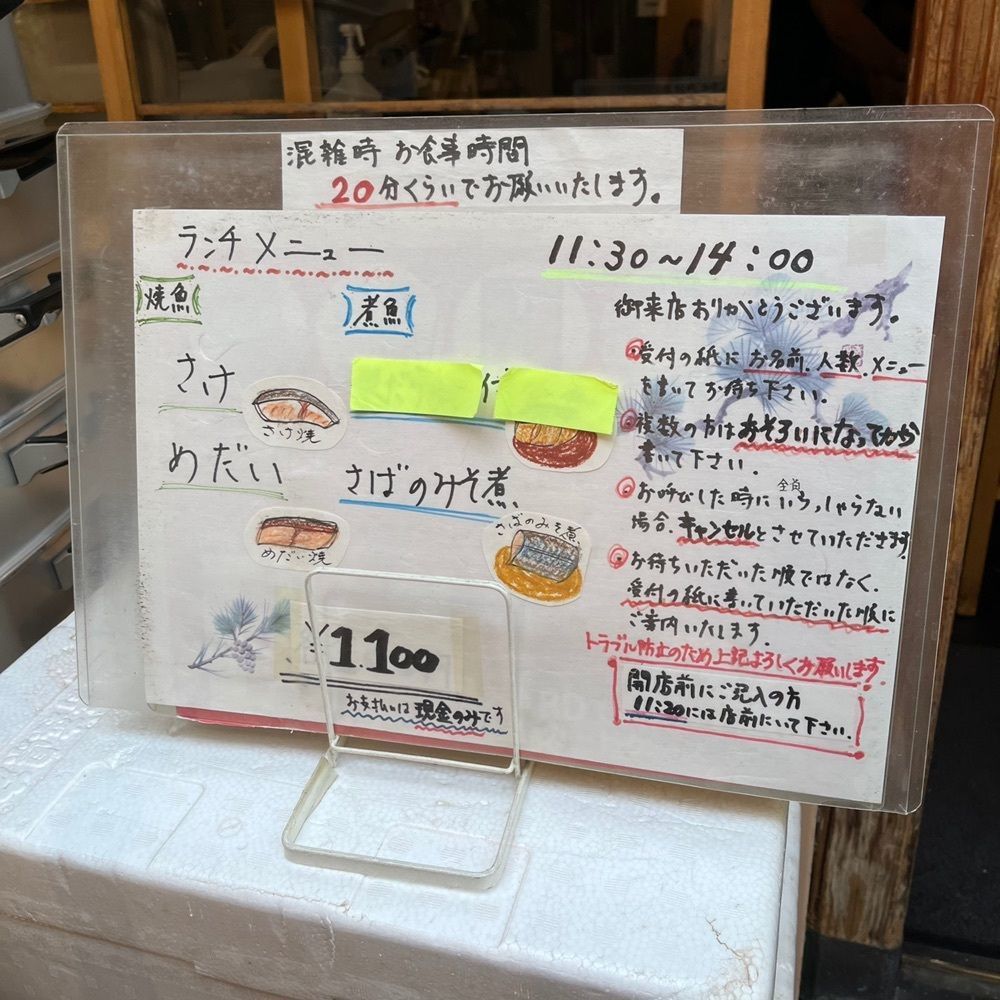 混雑時 お食事時間
20分くらいでお願いいたします。
ランチメニュー
11:30~14:00
焼魚
煮魚
さけ
さけ焼
めだい
めだい焼
さばのみそ煮
さばのみそ煮
¥1.100
お支払いは現金のみです
御来店ありがとうございます。
受付の紙に お名前、人数、メニュー
を書いてお待ち下さい。
複数の方はおそろいになってから
書いて下さい。
お呼びした時に全員いらっしゃらない
場合、キャンセルとさせていただきます
お待ちいただいた順ではなく、
受付の紙に書いていただいた順に
ご案内いたします。
トラブル防止のため上記よろしくお願いします
開店前にご記入の方
11:20には店前にいて下さい。